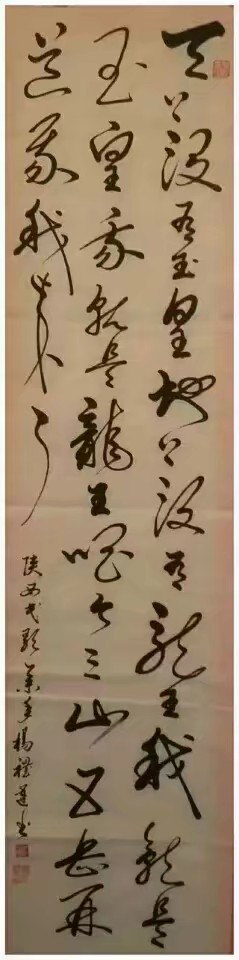 天上没有玉皇地上没有龍王我就是
玉皇我就是龍王喝令三山五岳开
道我我来了
陕西民歌 楊禮蓮书